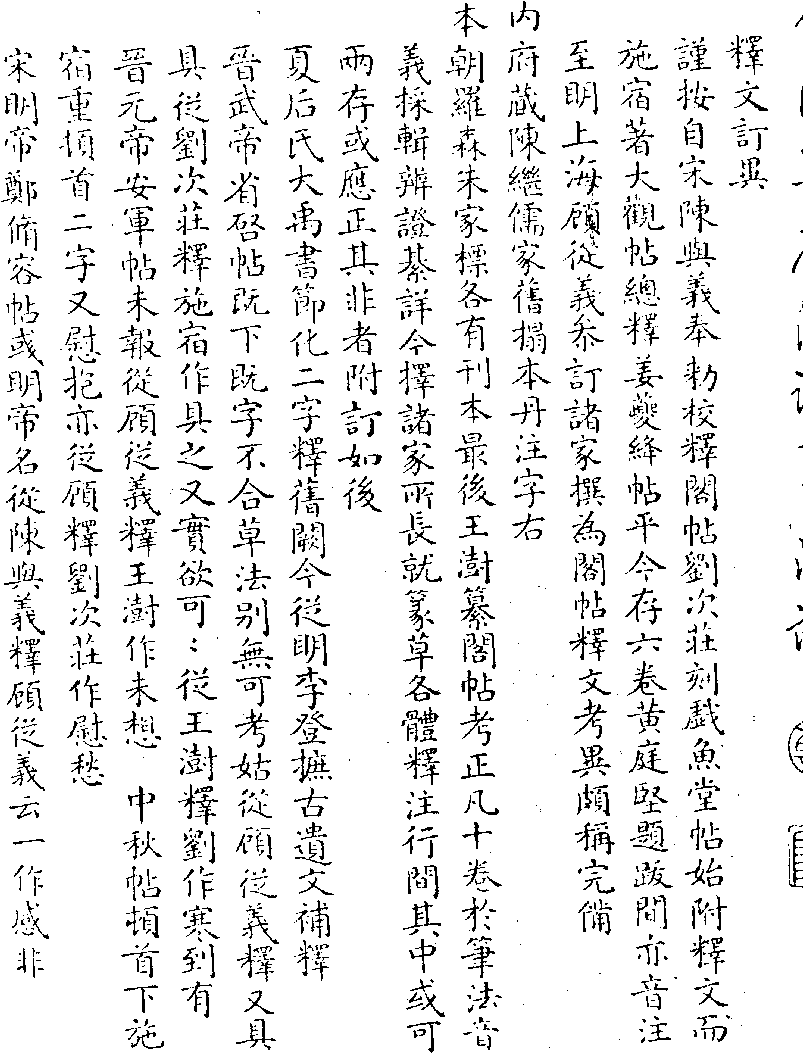 釋文訂異
謹按自宋陳與義奉勅校釋閣帖劉次莊刻戲魚堂帖始附釋文而
施宿著大觀帖總釋姜夔絳帖平今存六卷黄庭堅題跋間亦音注
至明上海顧從義叅訂諸家撰為閣帖釋文考異頗稱完備
内府蔵陳繼儒家舊搨本丹注字右
本朝羅森朱家標各有刊本最後王澍纂閣帖考正凡十卷於筆法音
義採輯辨證綦詳今擇諸家所長就篆草各體釋注行間其中或可
兩存或應正其非者附訂如後
夏后氏大禹書節化二字釋舊闕今從明李登摭古遺文補釋
晉武帝省啓帖既下既字不合草法别無可考姑從顧從義釋又具
具從劉次莊釋施宿作具之又實欲可〻從王澍釋劉作寒到有
晉元帝安軍帖未報從顧從義釋王澍作未想 中秋帖頓首下施
宿重頓首二字又慰抱亦從顧釋劉次莊作慰愁
宋明帝鄭脩容帖或明帝名從陳與義釋顧從義云一作感非